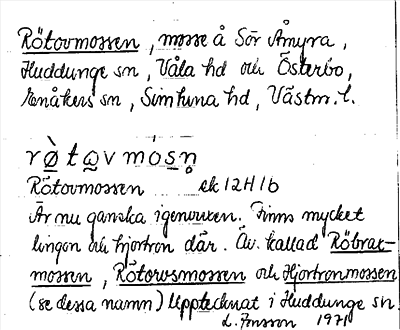 Rötovmossen, mosse å Sör Åmyra,
Huddunge sn, Våla hd och Österbo,
Enåkers sn, Simtuna hd, Västm. l.
rø̀tɷvmósn̥
Rötovmossen ek 12H1b
Är nu ganska igenvuxen. Finns mycket
lingon och hjortron där. Äv. kallad Röbrac-
mossen, Rötorvsmossen och Hjortronmossen
(se dessa namn) Upptecknat i Huddunge sn
L. Jonsson 1971